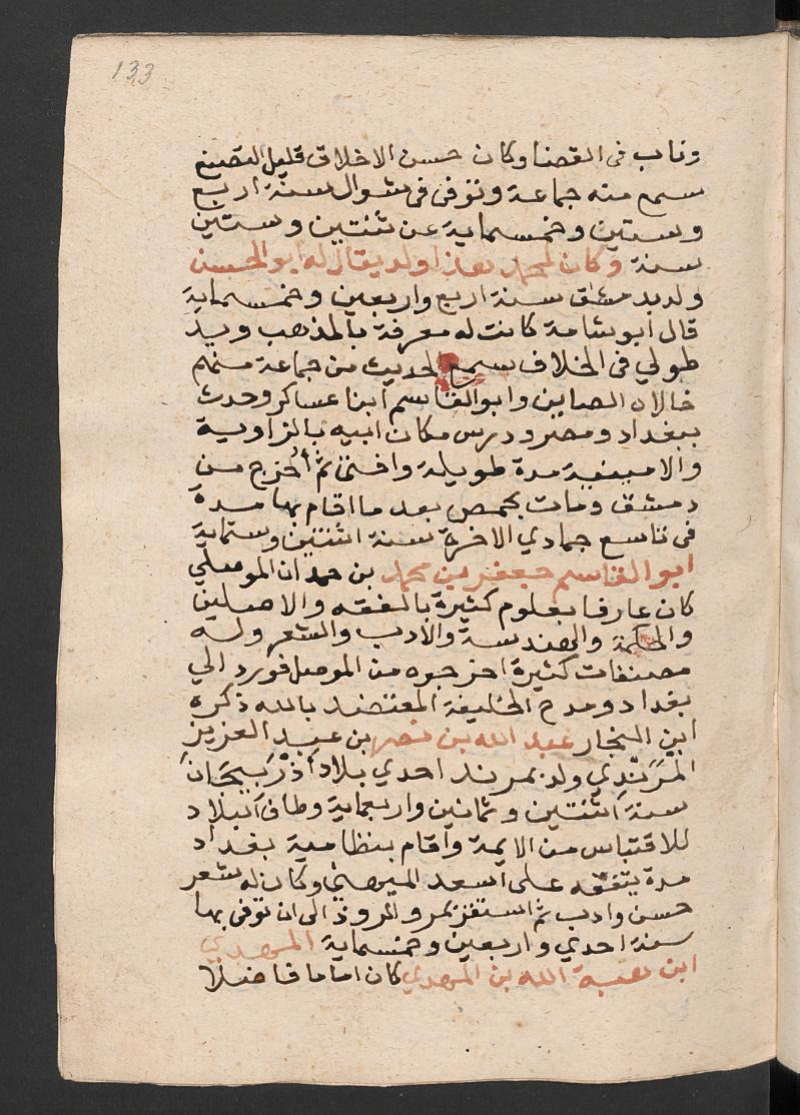 133
وناب في القضا وكان حسن الاخلاق قليل التصنع
سمع منه جماعة وتوفى في شوال سنة اربع
وستين وخمسماية عن ثنتين وستين
سنة وكان لمحمد هذا ولد يقال له ابو الحسن
ولد بدمشق سنة اربع واربعين وخمسماية
قال ابو شامة كانت له معرفة بالمذهب ويد
طولي في الخلاف سمع الحديث من جماعة منهم
خالاه الصاين وابو القاسم ابنا عساكر وحدث
ببغداد ومصر ودرس مكان ابيه بالزاوية
والامينية مدة طويلة وافتى ثم أُخرج من
دمشق ومات بحمص بعد ما اقام بها مدة
في تاسع جمادي الاخرة سنة اثنتين وستماية
ابو القاسم جعفر بن محمد بن حمدان الموصلي
كان عارفا بعلوم كثيرة بالفقه والاصلين
والحكمة والهندسة والادب والشعر وله
مصنفات كثيرة اخرجوه من الموصل فورد الي
بغداد ومدح الخليفة المعتضد بالله ذكره
ابن النجار عبد الله بن نصر بن عبد العزيز
المَرَنْدِي ولد بمرند احدي بلاد أَذْرَبيجَانَ
سنة اثنتين وثمانين واربعماية وطاف البلاد
للاقتباس من الايمة واقام بنظامية بغداد
مدة يتفقه على اسعد الميهني وكان له شعر
حسن وادب ثم استقر بمرو الروذ الى ان توفى بها
سنة احدي واربعين وخمسماية المهدي
ابن هبة الله بن المهدي كان اماما فاضلا